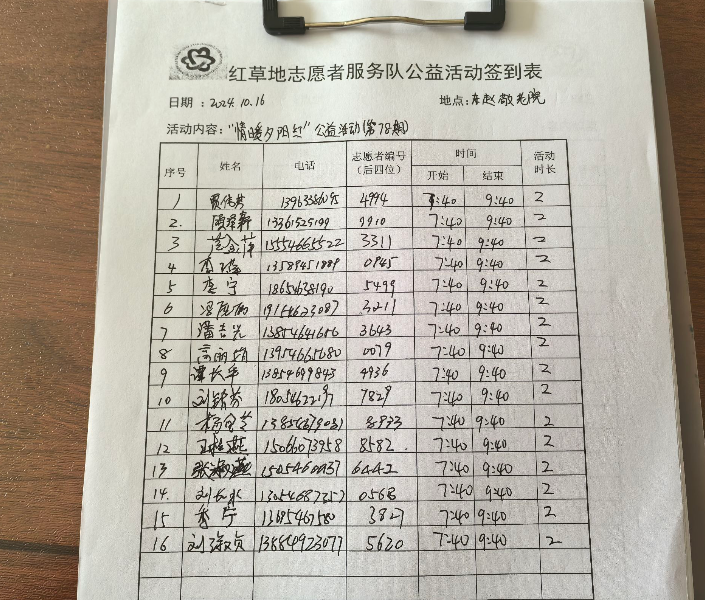 红草地志愿者服务队公益活动签到表
日期：2024.10.16 地点：库赵敬老院
活动内容："情暖夕阳红"公益活动(第78期)
序号 姓名 电话 志愿者编号（后四位） 时间 开始 结束 活动时长
1 4994 7:40 9:40 2
2. 13361525199 9910 7:40 9:40 2
3 15554665522 3311 7:40 9:40 2
4 13589451889 0945 7:40 9:40 2
5 李宁 18654638190 5499 7:40 9:40 2
6 19154623087 3211 7:40 9:40 2
7 潘吉光 13854641656 3643 7:40 9:40 2
8 13954665680 0079 7:40 9:40 2
9 谭长年 13854699843 4936 7:40 9:40 2
10 7829 7:40 9:40 2
11 7:40 9:40 2
12 15066073958 8582 7:40 9:40 2
13 张淑燕 6442 7:40 9:40 2
14. 刘长水 0568 7:40 9:40 2
15 李宁 3827 7:40 9:40 2
16 刘淑贞 5620 7:40 9:40 2